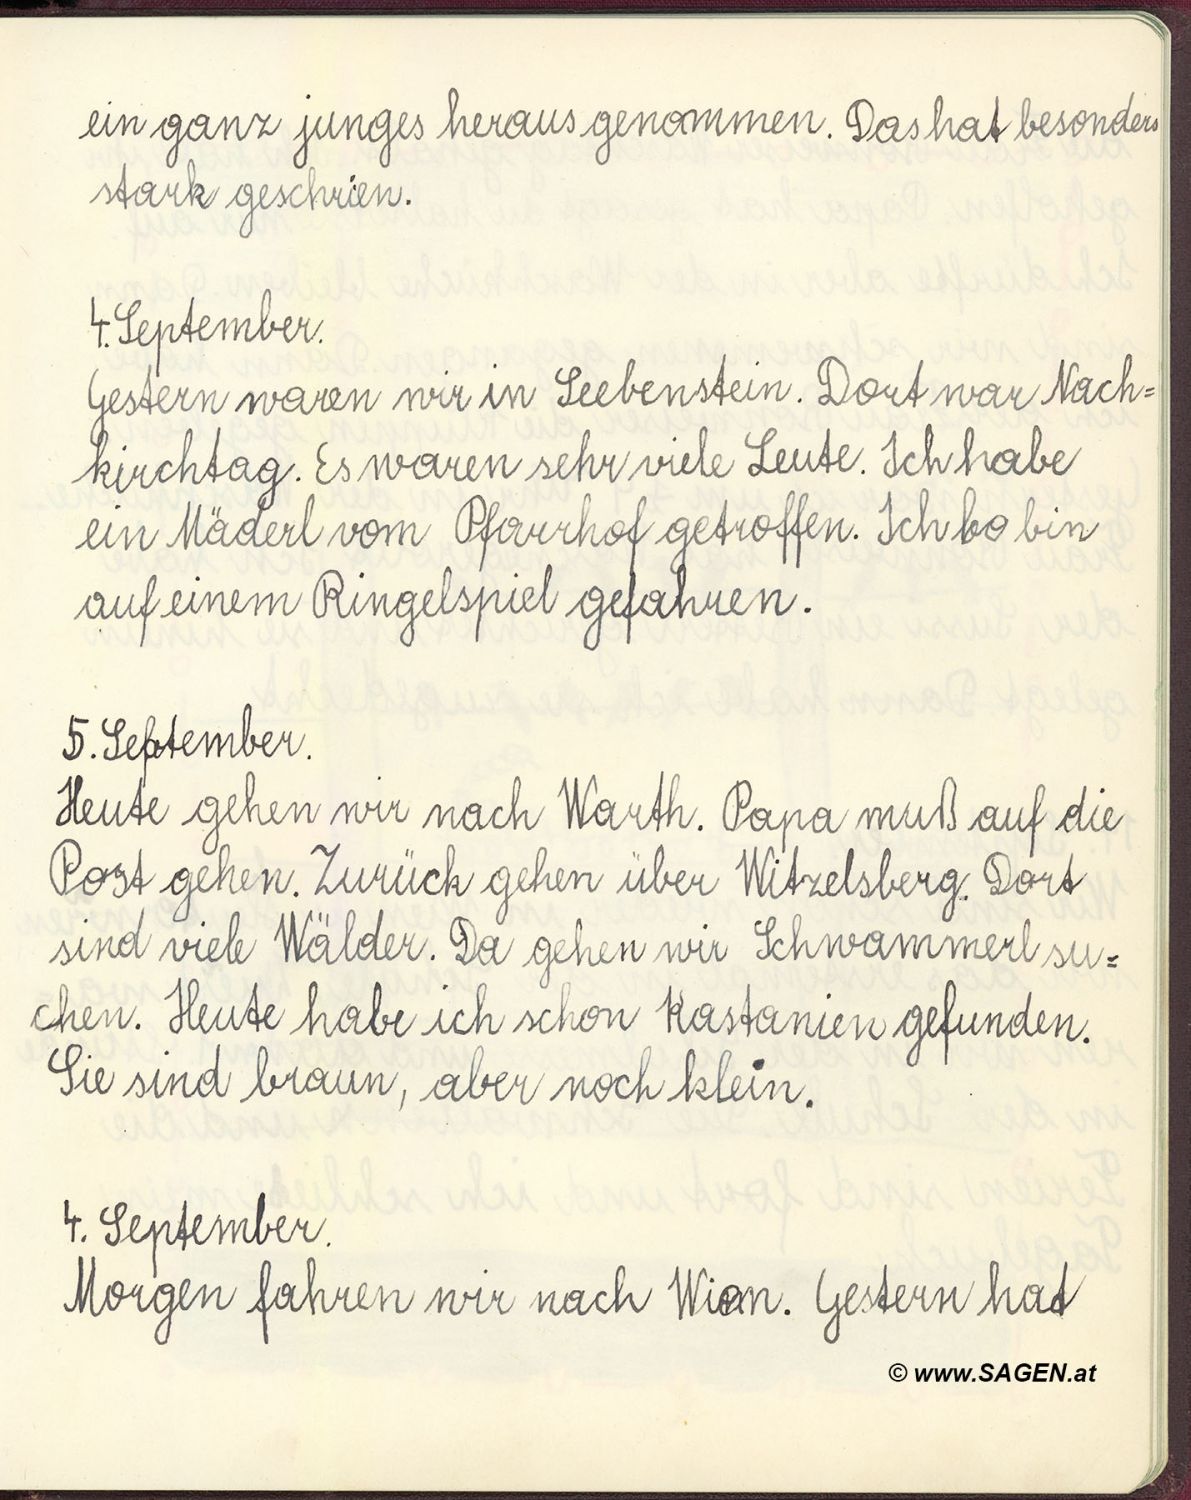 ein ganz junges heraus genommen. Das hat besonders
stark geschrien.
4. September.
Gestern waren wir in Seebenstein. Dort war Nach=
kirchtag. Es waren sehr viele Leute. Ich habe
ein Mäderl vom Pfarrhof getroffen. Ich bo bin
auf einem Ringelspiel gefahren.
5. September.
Heute gehen wir nach Warth. Papa muß auf die
Post gehen. Zurück gehen über Witzelsberg. Dort
sind viele Wälder. Da gehen wir Schwammerl su=
chen. Heute habe ich schon Kastanien gefunden.
Sie sind braun, aber noch klein.
4. September.
Morgen fahren wir nach Wien. Gestern hat
© www.SAGEN.at